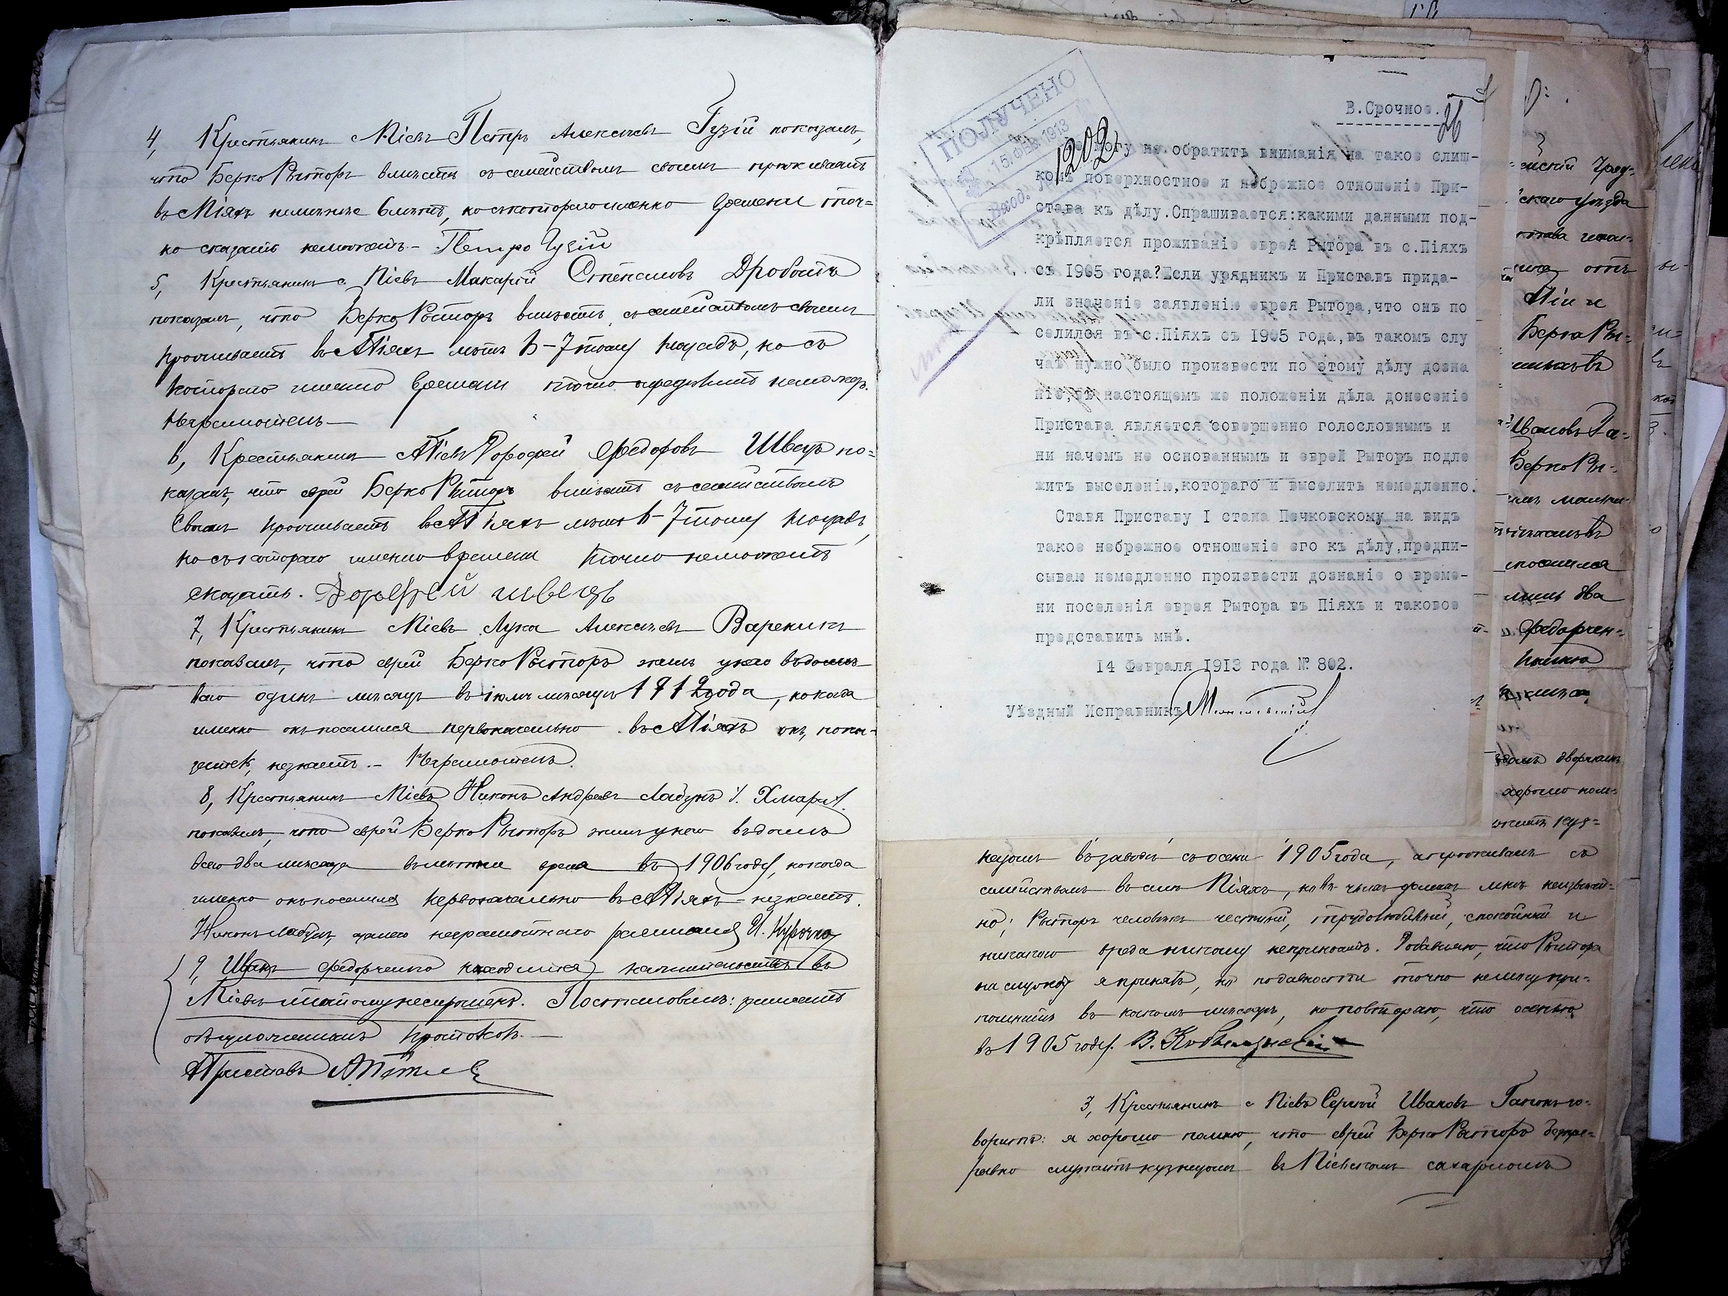 4, Крестьянинъ с. Піевъ Петръ Алексѣевъ Гузій показалъ,
что Берко Рыторъ вмѣстѣ съ семействомъ своимъ проживаетъ
въ с. Піяхъ не менѣе 6 лѣтъ, но съ котораго именно времени точ=
но сказать не можетъ – Петро Гузій
5, Крестьянинъ с. Піевъ Макарій Степановъ Дроботъ
показалъ, что Берко Рыторъ вмѣстѣ съ семействомъ своимъ
проживаетъ въ с. Піяхъ лѣтъ 6–7 тому назадъ, но съ
котораго именно времени точно опредѣлить не можетъ.
Неграмотенъ –
6, Крестьянинъ с. Піевъ Дорофей Федоровъ Швецъ по=
казалъ, что еврей Берко Рыторъ вмѣстѣ съ семействомъ
своимъ проживаетъ въ с. Піяхъ лѣтъ 6–7 тому назадъ,
но съ котораго именно времени точно не можетъ
сказать. Дорофей швець
7, Крестьянинъ с. Піевъ Лука Алексѣевъ Вареникъ
показалъ, что еврей Берко Рыторъ жилъ у него въ домѣ
всего одинъ мѣсяцъ въ іюлѣ мѣсяцѣ 1912 года, но когда
именно онъ поселился первоначально въ с. Піяхъ онъ,
не знаетъ. – Неграмотенъ.
8, Крестьянинъ с. Піевъ Никонъ Андреевъ Ладунъ
показалъ, что еврей Берко Рыторъ жилъ у него въ домѣ
всего два мѣсяца въ лѣтнее время въ 1906 году, но когда
именно онъ поселился первоначально въ с. Піяхъ – не знаетъ.
Никонъ Ладунъ, а за него неграмотнаго росписался
9, Иванъ Федорченко находится на жительствѣ въ
Постановилъ: записать
въ протоколъ. –
Приставъ
В. Срочное.
26
ПОЛУЧЕНО
1913
Вход. № 1202
Не могу не обратить вниманія на такое слиш-
комъ поверхностное и небрежное отношеніе При-
става къ дѣлу. Спрашивается: какими данными под-
крѣпляется проживаніе еврея Рытора въ с. Піяхъ
съ 1905 года? Если урядникъ и Приставъ прида-
ли значеніе заявленію еврея Рытора, что онъ по
селился въ с. Піяхъ съ 1905 года, въ такомъ слу
чаѣ нужно было произвести по этому дѣлу дозна
ніе, въ настоящемъ же положеніи дѣла донесеніе
Пристава является совершенно голословнымъ и
ни на чемъ не основаннымъ и еврей Рыторъ подле
житъ выселенію, котораго и выселить немедленно.
Ставя Приставу I стана Печковскому на видъ
такое небрежное отношеніе его къ дѣлу, предпи-
сываю немедленно произвести дознаніе о време-
ни поселенія еврея Рытора въ Піяхъ и таковое
представить мнѣ.
14 Февраля 1913 года № 802.
Уѣздный Исправникъ
въ заводѣ съ осени 1905 года, а проживалъ съ
семействомъ въ селѣ Піяхъ, но въ чьихъ домахъ мнѣ неизвѣст-
но; Рыторъ человѣкъ честный, трудолюбивый, спокойный и
никакого вреда никому не приноситъ. Добавляю, что Рытора
на службу я принялъ, но по давности точно не могу при-
помнить въ какомъ мѣсяцѣ, но повторяю, что осенью
въ 1905 году.
3, Крестьянинъ с. Піевъ Сергѣй Ивановъ Гапонъ го-
воритъ: я хорошо помню, что еврей Берко Рыторъ безпре-
рывно служитъ кузнецомъ въ Піевскомъ сахарномъ